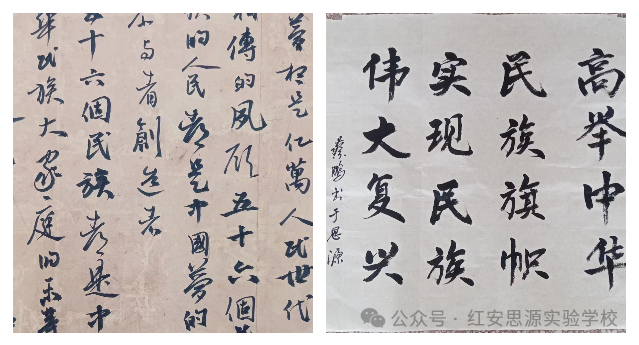 夢想是亿萬人民世代
相傳的夙願五十六個
族的人民都是中國夢的
與者創造者
五十六個民族都是中
華民族大家庭的
高举中华
民族旗帜
实现民族
伟大复兴
蔡鹏书于思源
公众号 · 红安思源实验学校